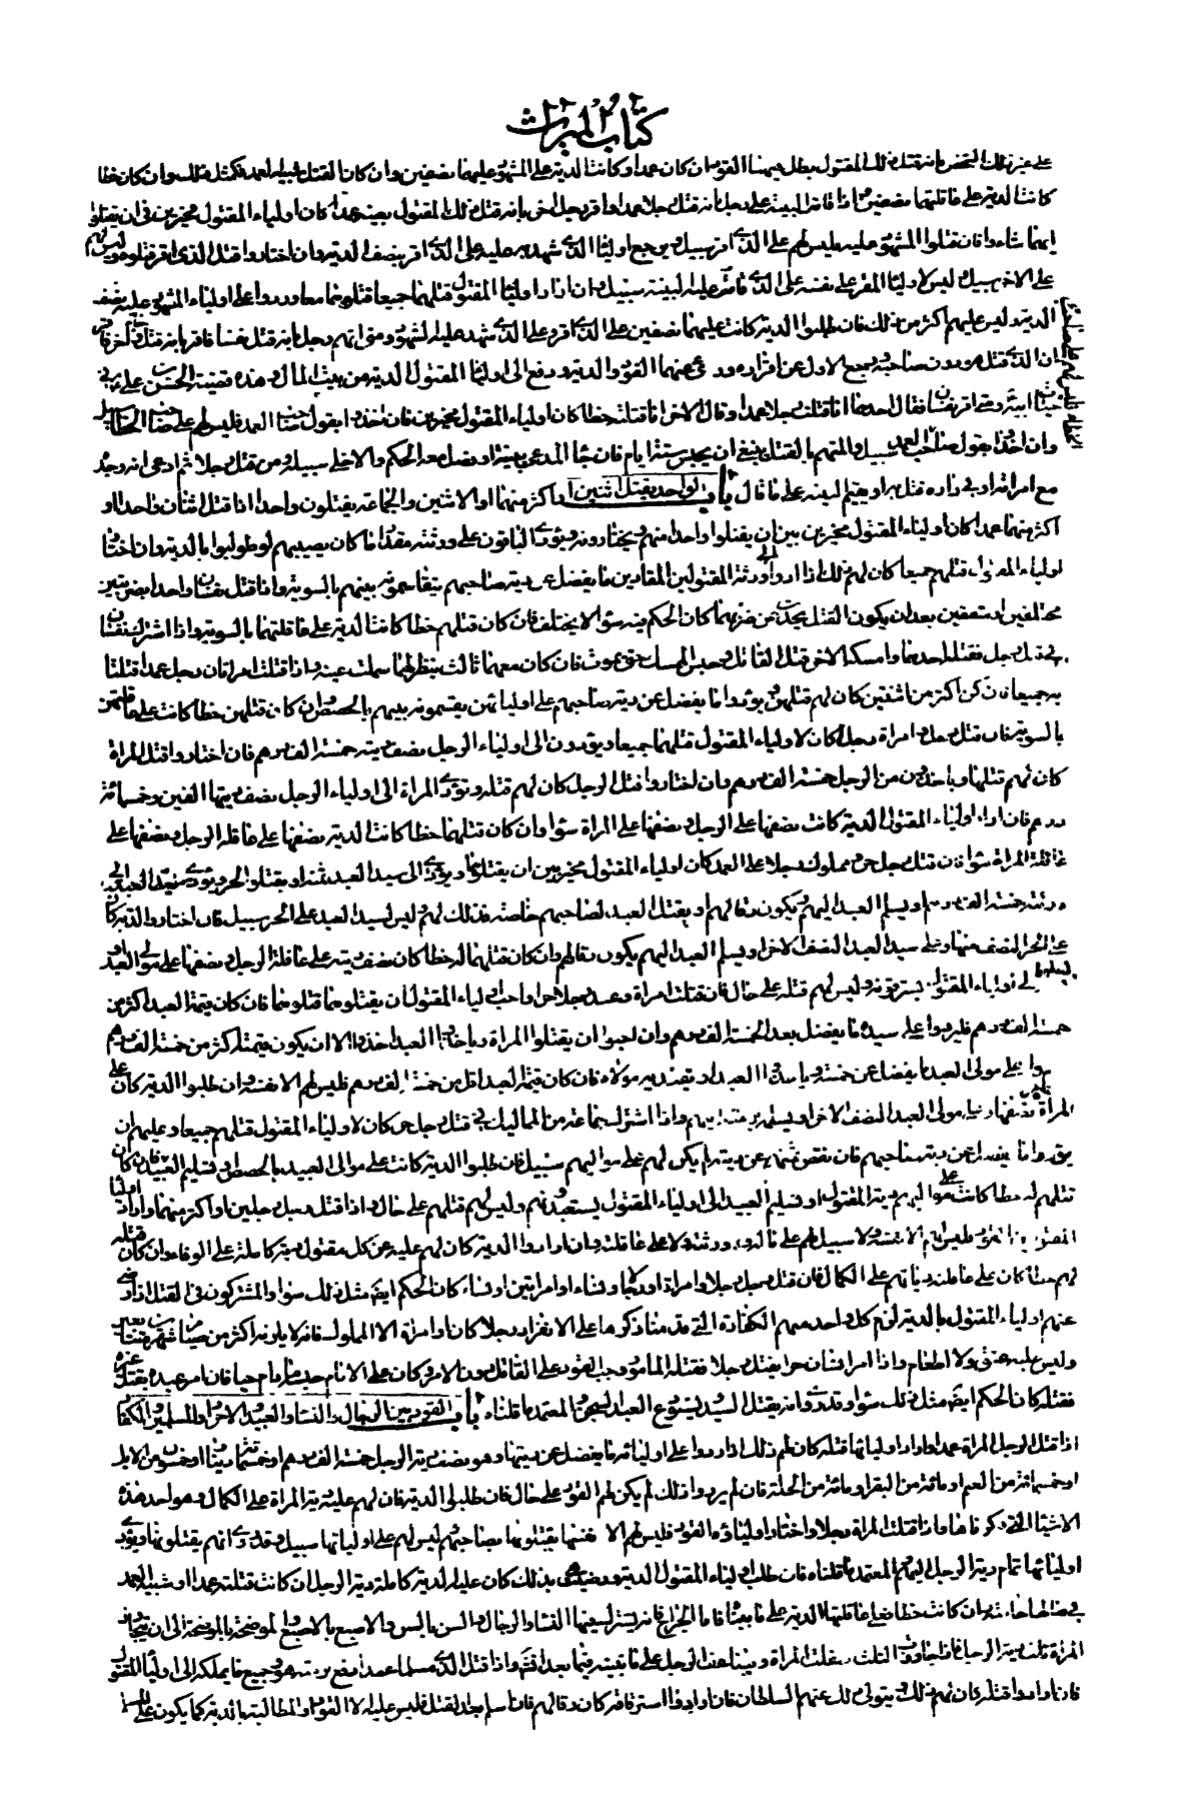 كتاب الميراث
على غير ذلك الشخص بانه قتل ذلك المقتول بطل هيهنا القود ان كان عمدا وكانت الدية على المشهود عليهما نصفين وان كان القتل شبيه العمد فكمثل ذلك وان كان خطا
كانت الدية على عاقلتهما نصفين واذا قامت البينة على رجل بانه قتل رجلا عمدا واقر رجل اخر بانه قتل ذلك المقتول بعينه عمدا كان اولياء المقتول مخيرين في ان يقتلوا
ايهما شاءوا فان قتلوا المشهود عليه فليس لهم على الذي اقر سبيل ويرجع اولياء الذي شهد عليه على الذي اقر بنصف الدية وان اختاروا قتل الذي اقر قتلوه وليس لهم
على الاخر سبيل وليس لاولياء المقر على نفسه على الذي قامت عليه البينة سبيل وان اراد اولياء المقتول قتلهما جميعا قتلوهما معا وردوا على اولياء المشهود عليه نصف
الدية وليس عليهم اكثر من ذلك فان طلبوا الدية كانت عليهما نصفين على الذي اقر وعلى الذي شهد عليه الشهود ومتى اتهم رجل بانه قتل نفسا فاقر بانه قتل وجاء اخر فاقر
ان الذي قتل هو دون صاحبه ورجع الاول عن اقراره ودرئ عنهما القود والدية ودفع الى اولياء المقتول الدية من بيت المال وهذه قضية الحسن بن علي في
حياة ابيه ومتى اقر نفسان فقال احدهما انا قتلت رجلا عمدا وقال الاخر انا قتلته خطا كان اولياء المقتول مخيرين فان اخذوا بقول صاحب العمد فليس لهم على صاحب الخطا سبيل
وان اخذوا بقول صاحب الخطاء فليس لهم على صاحب العمد سبيل والمتهم بالقتل ينبغي ان يحبس ستة ايام فان جاء المدعي ببينة او فصل معه الحكم والا خلي سبيله ومن قتل رجلا ثم ادعى انه وجده
مع امراته او في داره قتل به او يقيم البينة على ما قال باب الواحد يقتل اثنين او اكثر منهما او الاثنين والجماعة يقتلون واحدا اذا قتل اثنان واحدا او
اكثر منهما عمدا كان اولياء المقتول مخيرين بين ان يقتلوا واحدا منهم يختارونه ويؤدي الباقون على ورثته مقدار ما كان يصيبهم لو طولبوا بالدية وان اختار
اولياء المقتول قتلهم جميعا كان لهم ذلك اذا ادوا الى ورثة المقتولين المقادين ما يفضل عن دية صاحبهم يتقاسمونه بينهم بالسوية واذا قتل نفسان واحدا بضربتين
مختلفين او متفقين بعد ان يكون القتل يحدث عن ضربهما كان الحكم فيه سواء لا يختلف فان كان قتلهم خطا كانت الدية على عاقلتهما بالسوية واذا اشترك نفسان
في قتل رجل فقتله احدهما وامسكه الاخر قتل القاتل وحبس الممسك حتى يموت فان كان معهما ثالث ينظر لهما سملت عينه واذا قتلت امراتان رجلا عمدا قتلتا
به جميعا فان كن اكثر من اثنتين كان لهم قتلهن ويؤدوا ما يفضل عن دية صاحبهم على اوليائهن يقسمونه بينهم بالحصص وان كان قتلهن خطا كانت على عاقلتهن
بالسوية فان قتل رجل وامراة رجلا كان لاولياء المقتول قتلهما جميعا ويؤدون الى اولياء الرجل نصف ديته خمسة الف درهم فان اختاروا قتل المراة
كان لهم قتلها وياخذون من الرجل خمسة الف درهم وان اختاروا قتل الرجل كان لهم قتله وتؤدي المراة الى اولياء الرجل نصف ديتها الفين وخمسمائة
درهم فان اراد اولياء المقتول الدية كانت نصفها على الرجل ونصفها على المراة سواء وان كان قتلهما خطا كانت الدية نصفها على عاقلة الرجل ونصفها على
عاقلة المراة سواء فان قتل رجل حر ومملوك رجلا على العمد كان اولياء المقتول مخيرين ان يقتلوهما ويؤدى الى سيد العبد ثمنه او يقتلوا الحر ويؤدي سيد العبد الى
ورثته خمسة الف درهم او يسلم العبد اليهم ويكون رقا لهم او يقتل العبد لصاحبهم خاصة فذلك لهم وليس لسيد العبد على الحر سبيل فان اختاروا الدية كان
على الحر النصف منها وعلى سيد العبد النصف الاخر او يسلم العبد اليهم يكون رقا لهم وان كان قتلهما له خطا كان نصف ديته على عاقلة الرجل ونصفها على مولى العبد او
يسلمه الى اولياء المقتول يسترقونه وليس لهم قتله على حال فان قتلت امراة وعبد رجلا حرا واحب اولياء المقتول ان يقتلوهما قتلوهما فان كان قيمة العبد اكثر من
خمسة الف درهم فليردوا على سيده ما يفضل بعد الخمسة الف درهم وان احبوا ان يقتلوا المراة وياخذوا العبد اخذوا الا ان يكون قيمته اكثر من خمسة الف درهم
فليردوا على مولى العبد ما يفضل عن خمسة وياخذوا العبد او يفتديه مولاه فان كان قيمة العبد اقل من خمسة الف درهم فليس لهم الا نفسه وان طلبوا الدية كان على
المراة نصفها وعلى مولى العبد النصف الاخر او يسلمه برمته اليهم واذا اشترك جماعة من المماليك في قتل رجل حر كان لاولياء المقتول قتلهم جميعا وعليهم ان
يؤدوا ما يفضل عن دية صاحبهم فان نقص ثمنهم عن ديته لم يكن لهم على مواليهم سبيل فان طلبوا الدية كانت على موالي العبيد بالحصص او تسليم العبيد فان كان
قتلهم له خطا كانت على مواليهم دية المقتول او تسليم العبيد الى اولياء المقتول يستعبدونهم وليس لهم قتلهم على حال واذا قتل رجل رجلين او اكثر منهما واراد اولياء
المقتولين القود فليس لهم الا نفسه ولا سبيل لهم على ماله ولا ورثته ولا على عاقلته وان ارادوا الدية كان لهم عليه عن كل مقتول دية كاملة على الوفاء وان كان قتله
لهم خطا كان على عاقلته دياتهم على الكمال فان قتل رجل رجلا وامراة او رجالا ونساء او امراتين او نساء كان الحكم ايضا مثل ذلك سواء والمشتركون في القتل اذا رضى
عنهم اولياء المقتول بالدية لزم كل واحد منهم الكفارة التي قدمنا ذكرها على الانفراد رجلا كان او امراة الا المملوك فانه لا يلزمه اكثر من صيام شهرين متتابعين
وليس عليه عتق ولا اطعام واذا امر انسان حرا بقتل رجل فقتله المامور وجب القود على القاتل دون الامر وكان على الامام حبسه ما دام حيا فان امر عبده بقتل غيره
فقتله كان الحكم ايضا مثل ذلك سواء وقد روى انه يقتل السيد ويستودع العبد السجن والمعتمد ما قلناه باب القود بين الرجال والنساء والعبيد والاحرار والمسلمين والكفار
اذا قتل الرجل المراة عمدا واراد اوليائها قتله كان لهم ذلك اذا ردوا على اوليائه ما يفضل عن ديتها وهو نصف دية الرجل خمسة الف درهم او خمسمائة دينار او خمسون من الابل
او خمسمائة من الغنم او مائة من البقر او مائة من الحلة فان لم يردوا ذلك لم يكن لهم القود على حال فان طلبوا الدية فان لهم عليه دية المراة على الكمال وهو احد هذه
الاشياء التي ذكرناها واذا قتلت المراة رجلا واختار اولياؤه القود فليس لهم الا نفسها يقتلونها بصاحبهم ليس لهم على اوليائها سبيل وقد روى انهم يقتلونها ويؤدي
اوليائها تمام دية الرجل اليهم والمعتمد ما قلناه فان طلب اولياء المقتول الدية ورضيت هي بذلك كان عليها الدية كاملة دية الرجل ان كانت قتلته عمدا او شبيه العمد
في مالها خاصة وان كانت خطا فعلى عاقلتها الدية على ما بيناه فاما الجراح فانه يشترك فيها النساء والرجال السن بالسن والاصبع بالاصبع والموضحة بالموضحة الى ان يتجاوز
المراة ثلث دية الرجل فاذا جاوزت الثلث سفلت المراة وتضاعف الرجل على ما نبينه فيما بعد انشاء الله واذا قتل الذمي مسلما عمدا دفع برمته هو وجميع ما يملكه الى اولياء المقتول
فان ارادوا قتله كان لهم ذلك ويتولى ذلك عنهم السلطان فان ارادوا استرقاقه كان رقا لهم فان اسلم بعد القتل فليس عليه الا القود او المطالبة بالدية كما يكون على المسلم